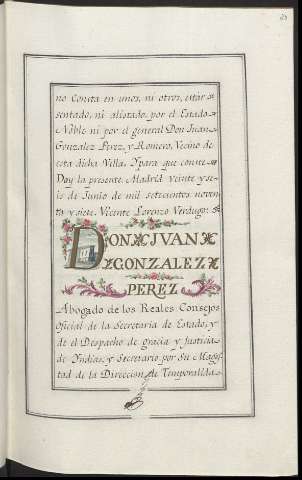 no Consta en unos, ni otros, estár
sentado, ni alistado, por el Estado
Noble ni por el general Don Juan
Gonzalez Perez, y Romero, Vecino de
esta dicha Villa. Ypara que conste
Doy la presente. Madrid veinte y se-
is de Junio de mil setecientos noven
ta y siete. Vicente Lorenzo Verdugo.
DON JVAN
GONZALEZ
PEREZ
Abogado de los Reales Consejos
Oficial de la Secretaria de Estado, y
de el Despacho de Gracia y Justicia
de Yndias, y Secretario por Su Mages
tad de la Direccion de Temporalida-